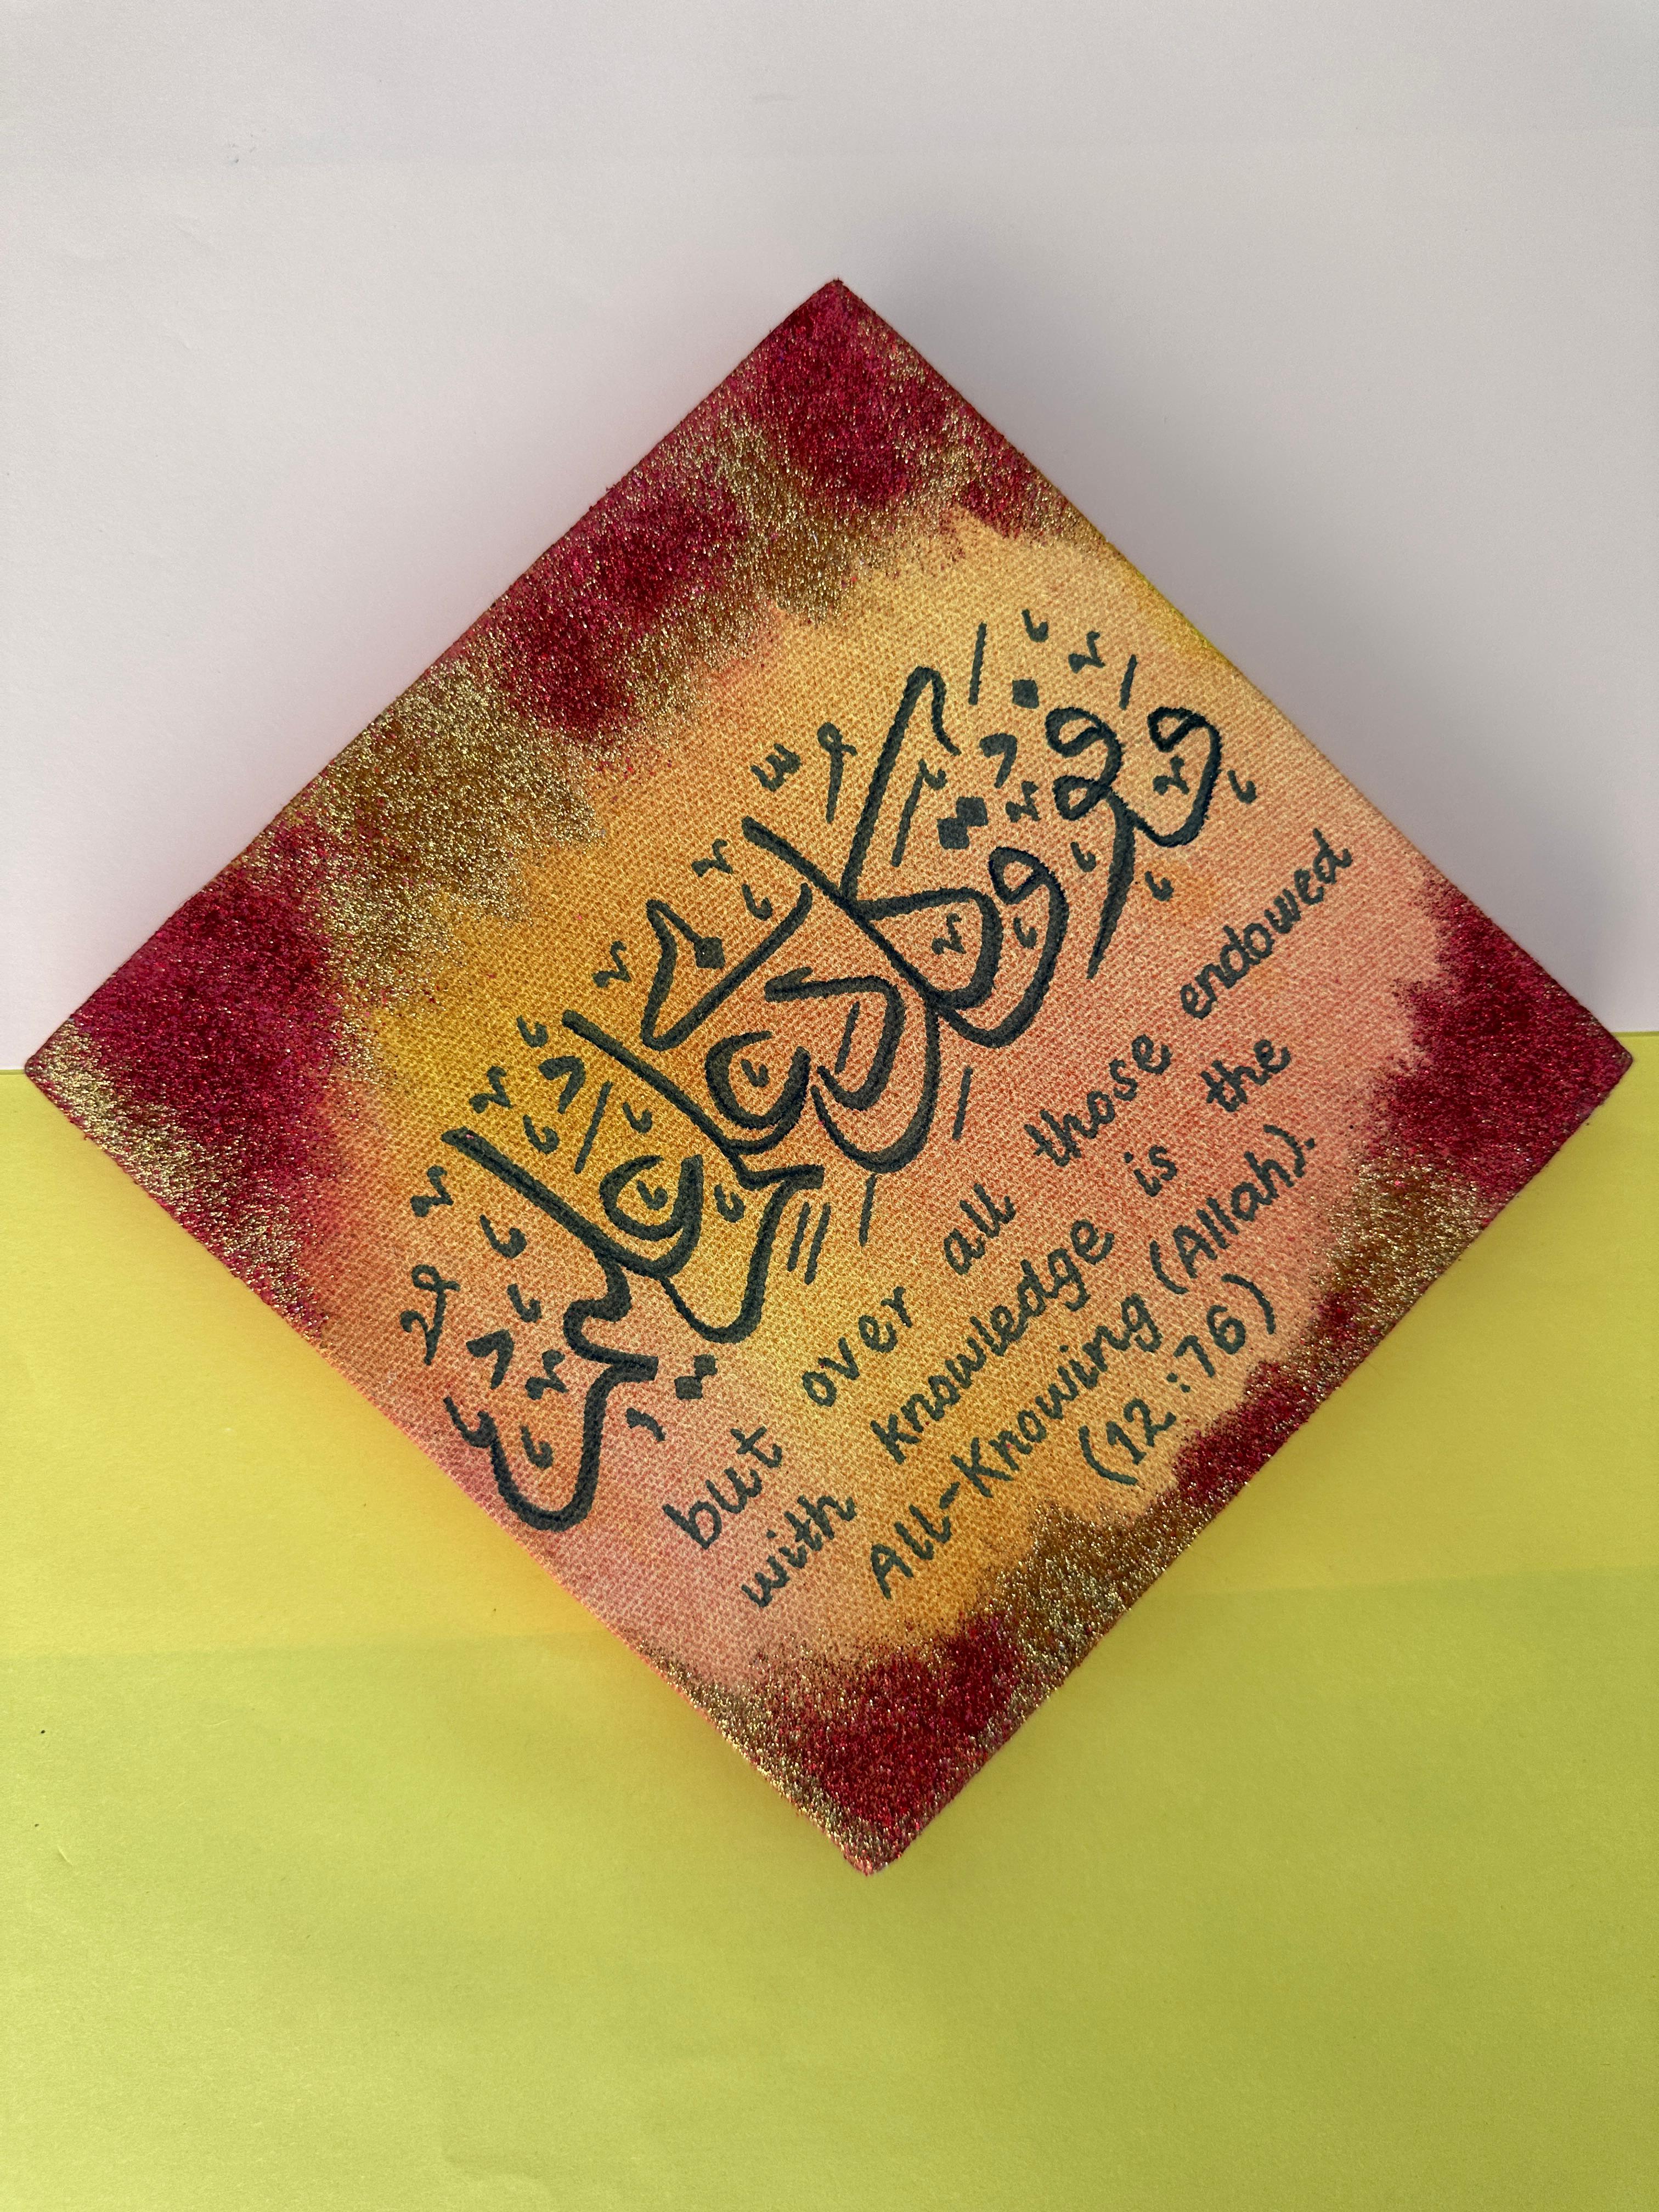 وَفَوْقَ كُلِّ ذِي عِلْمٍ عَلِيمٌ
but over all those endowed
with knowledge is the
All-Knowing (Allah).
(12:76)